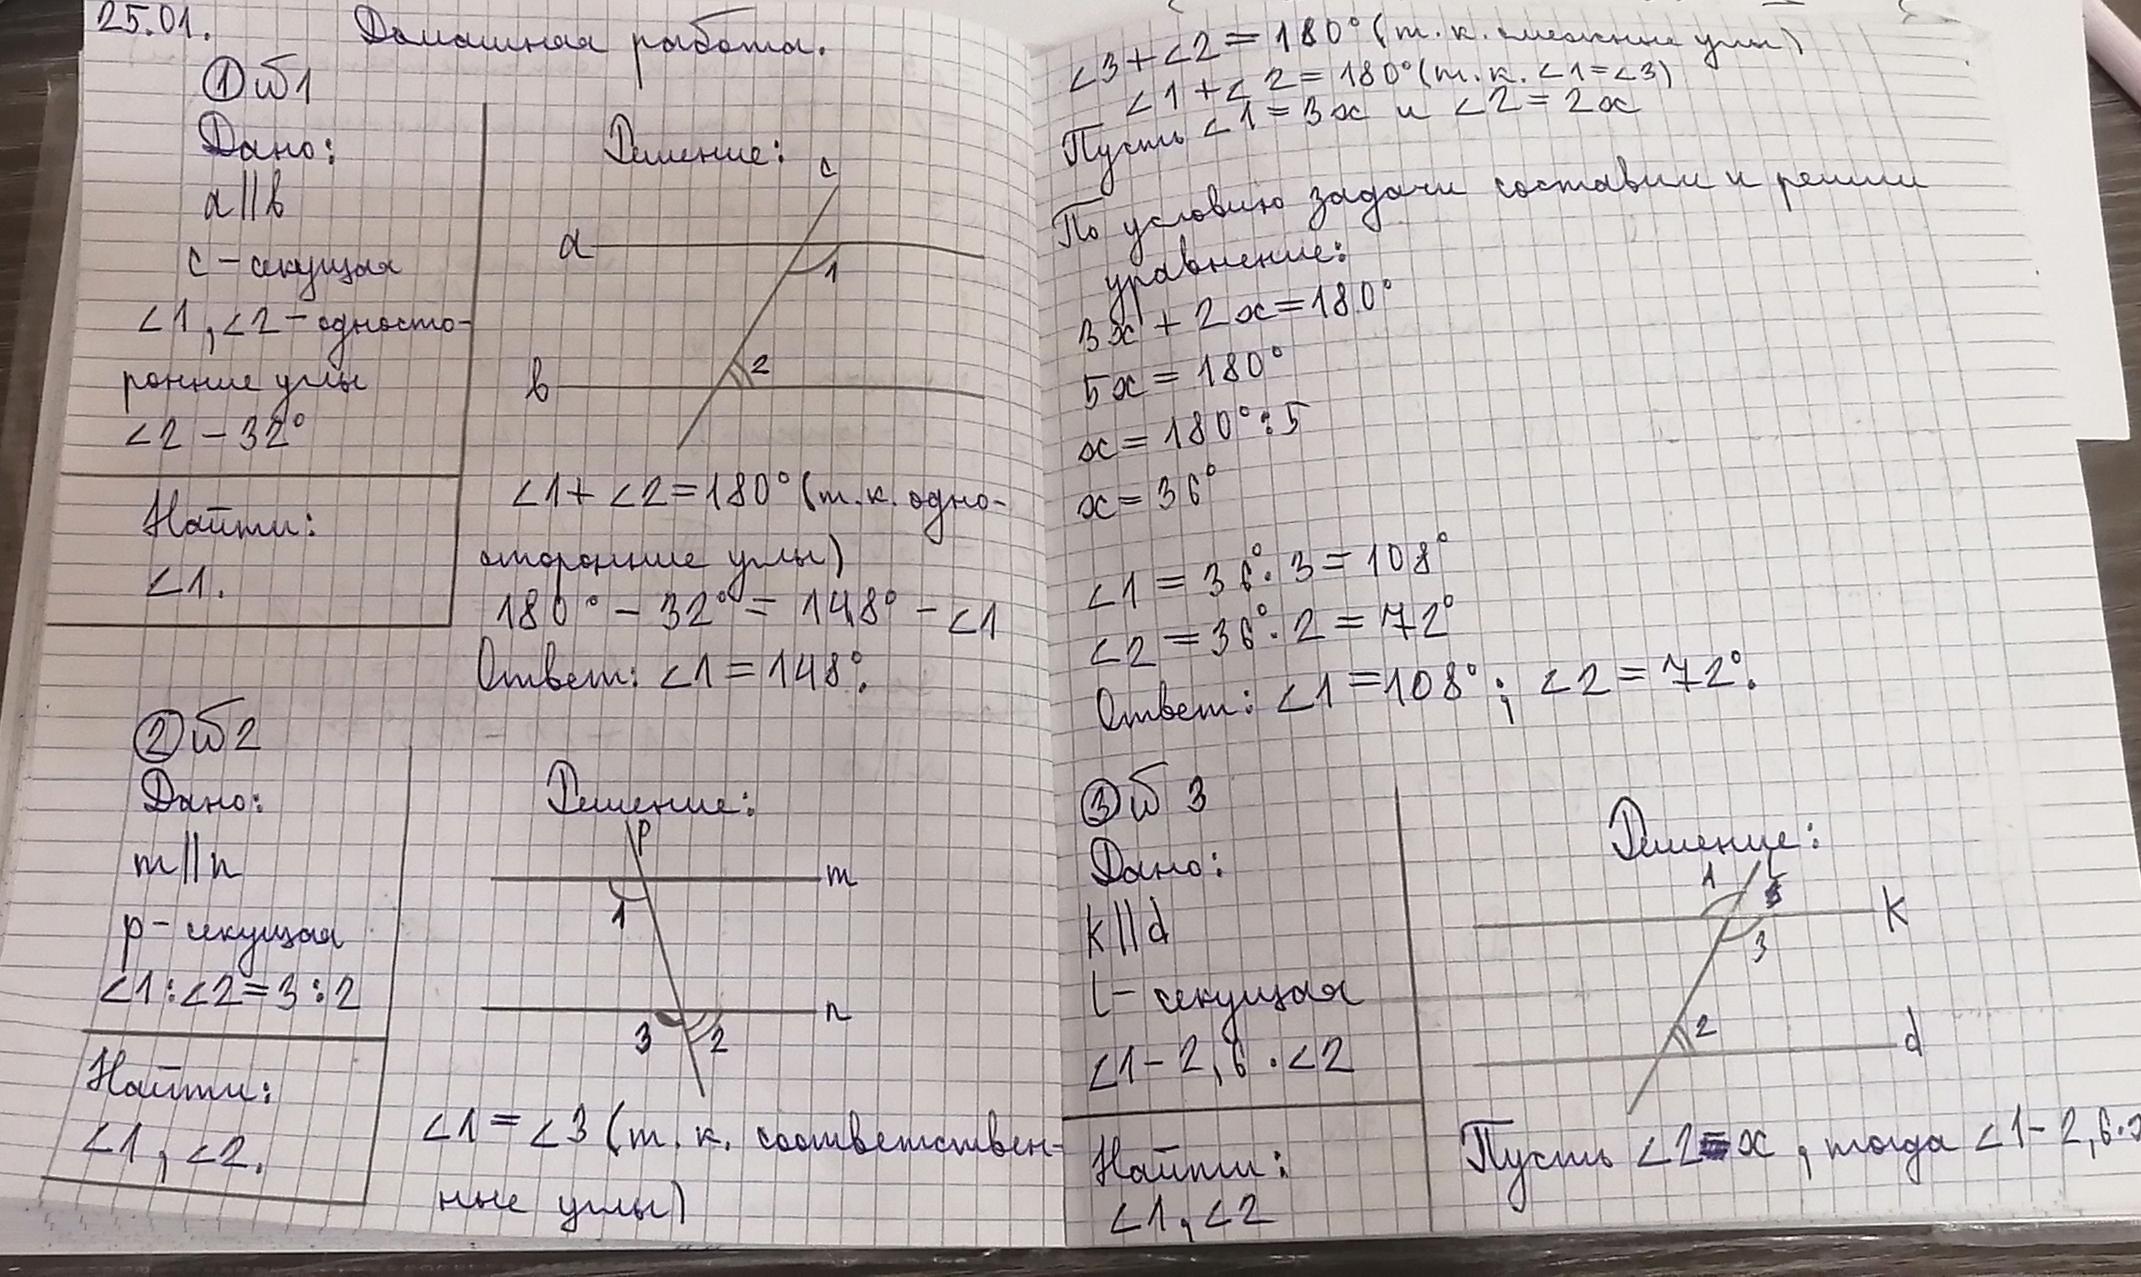 25.01. Домашняя работа.
① №1
Дано:
a||b
c - секущая
∠1, ∠2 - односто-
ронние углы
∠2 - 32°
Найти:
∠1.
Решение:
c
a
1
2
b
∠1 + ∠2 = 180° (т.к. одно-
сторонние углы)
180° - 32° = 148° - ∠1
Ответ: ∠1 = 148°.
② №2
Дано:
m||n
p - секущая
∠1 : ∠2 = 3 : 2
Найти:
∠1, ∠2.
Решение:
p
m
1
n
3 2
∠1 = ∠3 (т.к. соответствен-
ные углы)
∠3 + ∠2 = 180° (т.к. смежные углы)
∠1 + ∠2 = 180° (т.к. ∠1 = ∠3)
Пусть ∠1 = 3x и ∠2 = 2x
По условию задачи составим и решим
уравнение:
3x + 2x = 180°
5x = 180°
x = 180° : 5
x = 36°
∠1 = 36° · 3 = 108°
∠2 = 36° · 2 = 72°
Ответ: ∠1 = 108°; ∠2 = 72°.
③ №3
Дано:
k||d
l - секущая
∠1 - 2,6 · ∠2
Найти:
∠1, ∠2
Решение:
1 l
k
3
2
d
Пусть ∠2 = x, тогда ∠1 - 2,6 · x